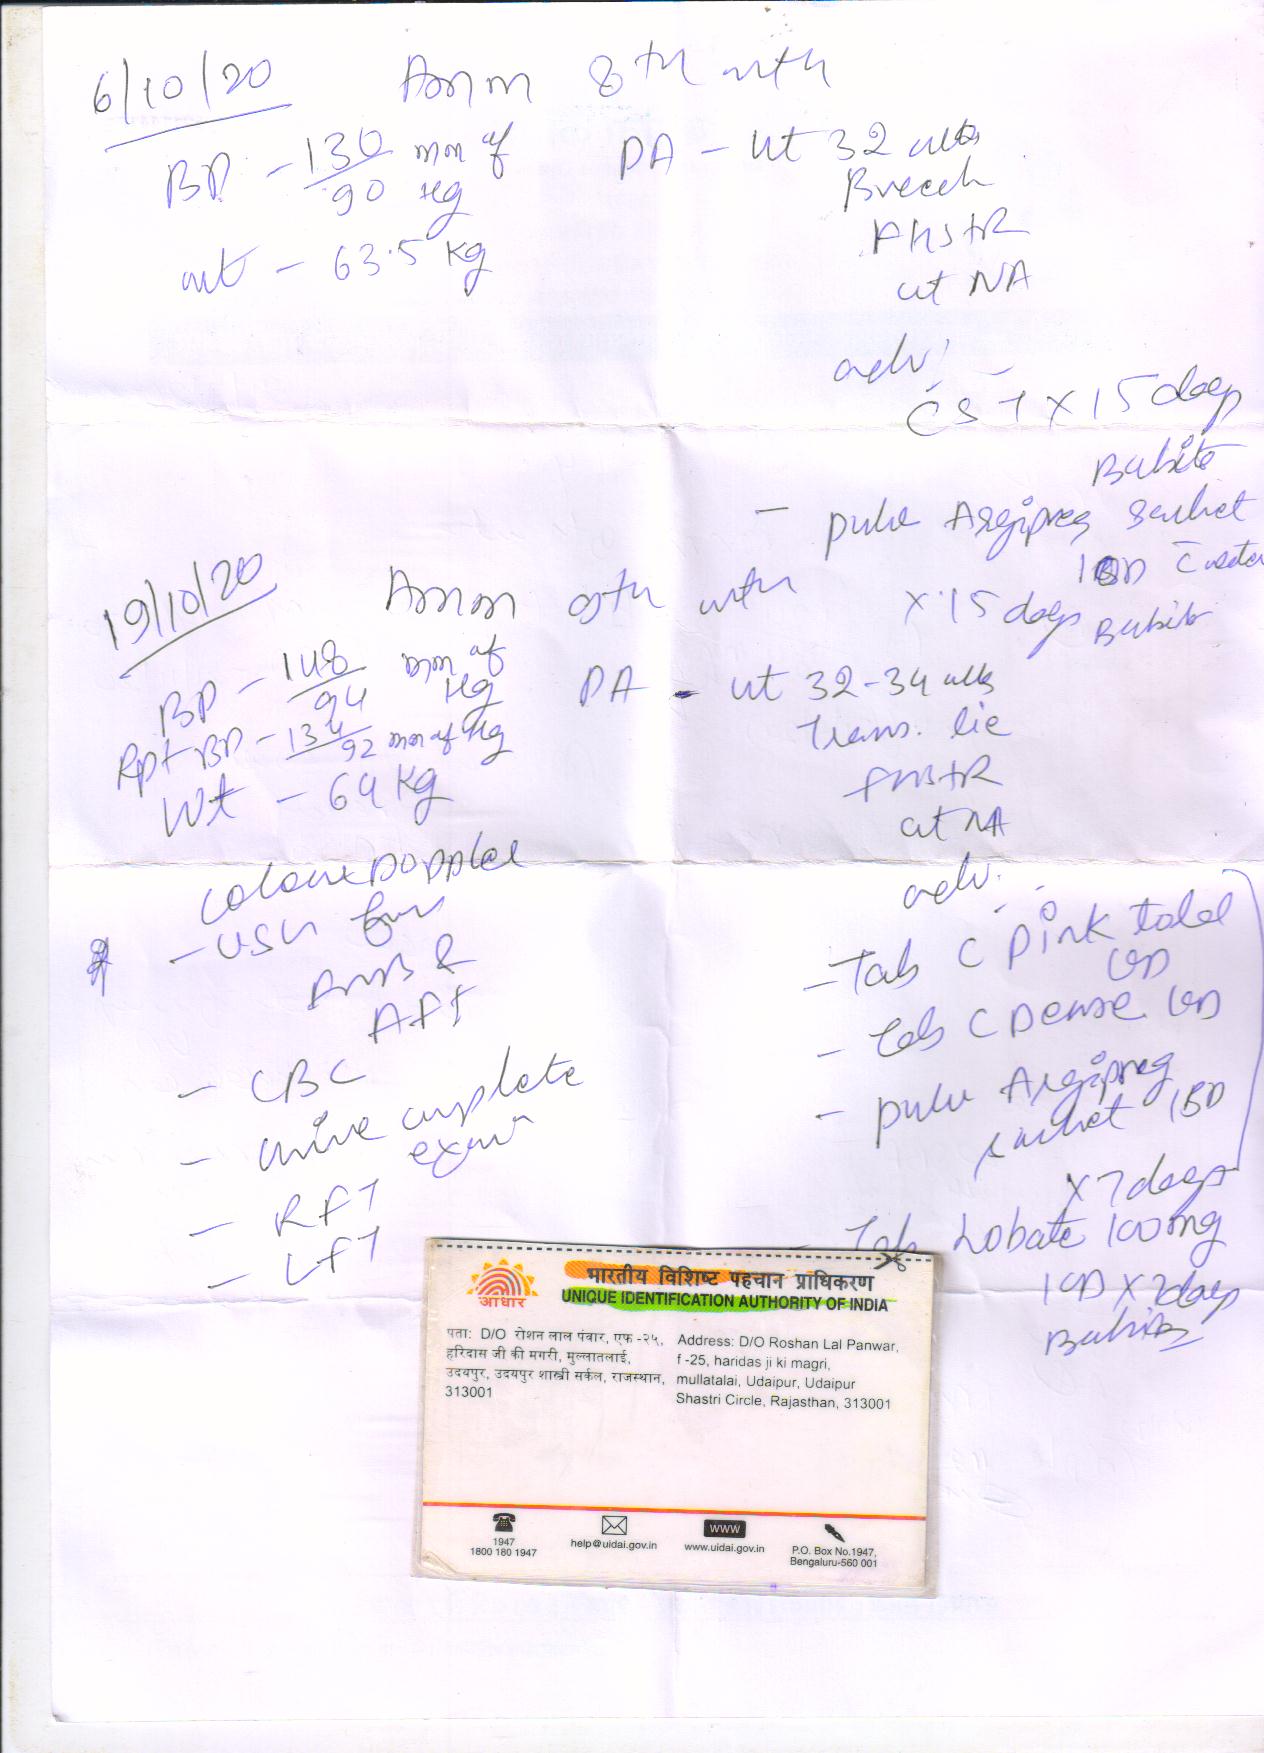 6/10/20 Amm 8th mth
BP - 130/90 mm of Hg
wt - 63.5 kg
PA - ut 32 wks
Breech
FHS+R
ut NA
adv:-
CST X 15 days
Babita
- pulv Argipreg sachet
1 BD c water
X 15 days
Babita
19/10/20 Amm 9th mth
BP - 148/94 mm of Hg
Rpt BP - 134/92 mm of Hg
Wt - 64 kg
PA - ut 32-34 wks
Trans. lie
FHS+R
ut NA
colour Doppler
- USG for
FWB &
AFI
- CBC
- urine complete
exam
- RFT
- LFT
adv:-
- Tab C Pink total
OD
- Tab C Dense OD
- pulv Argipreg
sachet 1BD
X 7 days
- Tab Lobate 100mg
1 OD X 7 days
Babita
आधार
भारतीय विशिष्ट पहचान प्राधिकरण
UNIQUE IDENTIFICATION AUTHORITY OF INDIA
पता: D/O रोशन लाल पंवार, एफ -२५,
हरिदास जी की मगरी, मुल्लातलाई,
उदयपुर, उदयपुर शास्त्री सर्कल, राजस्थान,
313001
Address: D/O Roshan Lal Panwar,
f -25, haridas ji ki magri,
mullatalai, Udaipur, Udaipur
Shastri Circle, Rajasthan, 313001
1947
1800 180 1947
help@uidai.gov.in
www
www.uidai.gov.in
P.O. Box No.1947,
Bengaluru-560 001